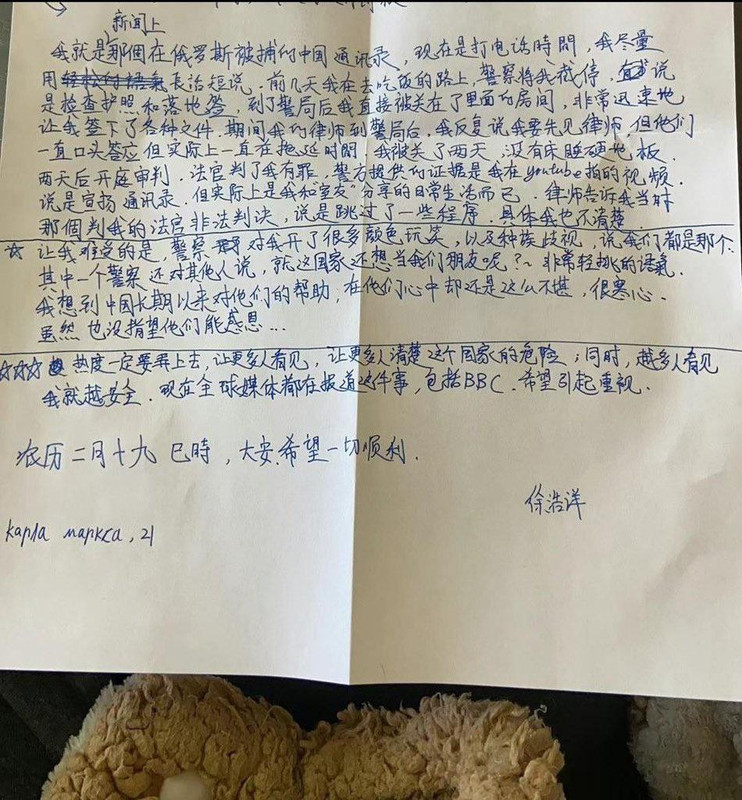 新闻上
我就是那個在俄罗斯被捕的中国通讯录,现在是打电话時間,我尽量
用長話短说.前几天我在去吃饭的路上,警察将我截停,说
是检查护照和落地签,到了警局后我直接被关在了里面的房间,非常迅速地
让我签下了各种文件.期间我的律师到警局后,我反复说我要先见律师,但他们
一直口头答应但实际上一直在拖延时間.我被关了两天,没有床睡硬地板.
两天后开庭审判,法官判了我有罪,警方提供的证据是我在youtube拍的视频.
说是宣扬通讯录.但实际上是我和室友"分享的日常生活而已.律师告诉我当时
那個判我的法官非法判决,说是跳过了一些程序,具体我也不清楚
☆ 让我难受的是,警察对我开了很多颜色玩笑,以及种族歧视,说我们都是那个.
其中一个警察还对其他人说,就这国家还想当我们朋友呢?~非常轻挑的语氣.
我想到中国长期以来对他们的帮助,在他们心中却还是这么不堪,很寒心.
虽然也没指望他们能感恩...
☆☆☆ 热度一定要弄上去,让更多人看见,让更多人清楚这个国家的危险;同时,越多人看见
我就越安全.现在全球媒体都在报道这件事,包括BBC.希望引起重视.
农历二月十九 巳時,大安.希望一切顺利.
徐浩洋
карла маркса,21